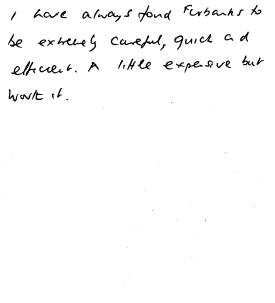 I have always found Furbanks to
be extremely careful, quick and
efficient. A little expensive but
worth it.